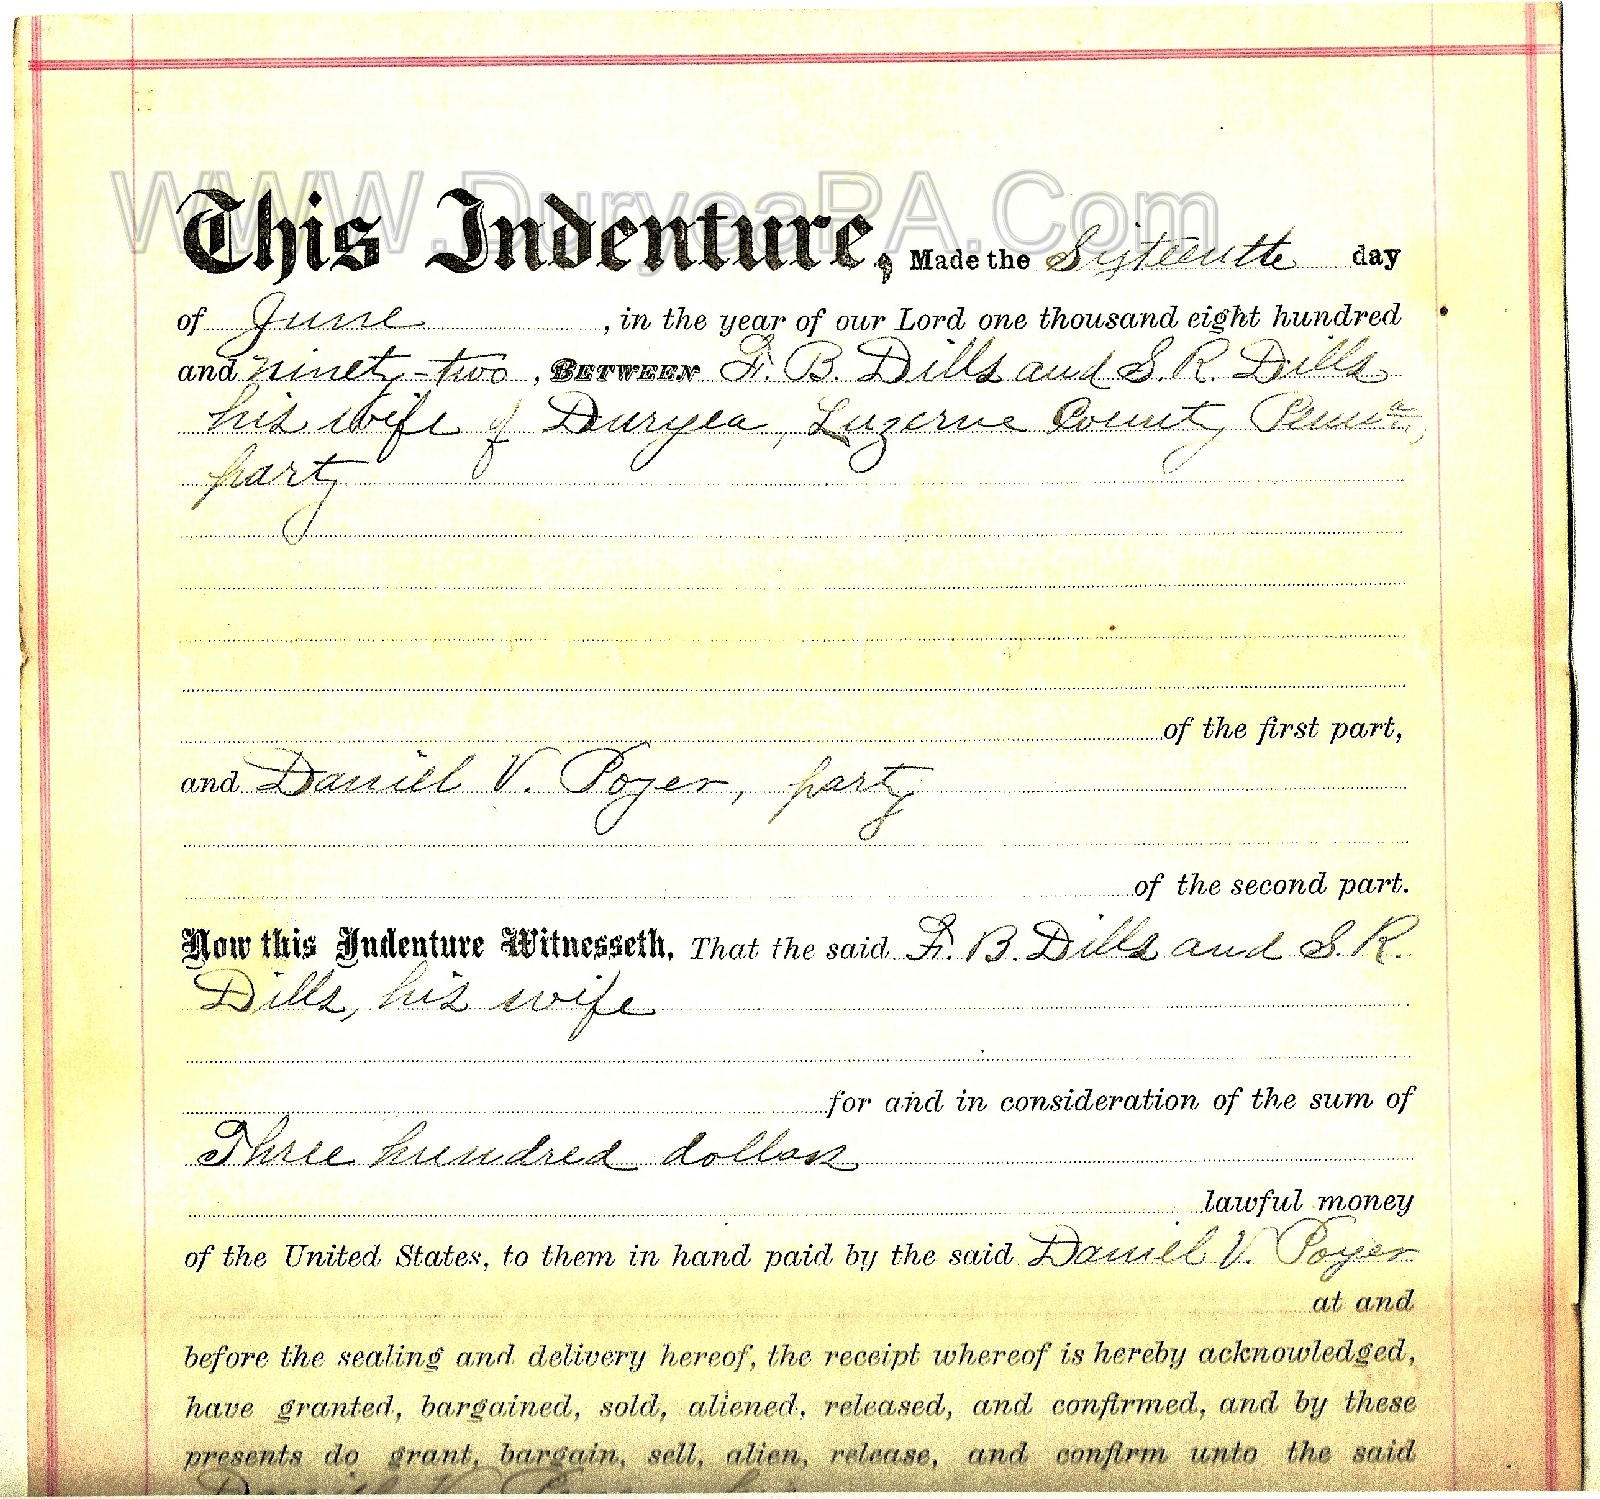 WWW.DuryeaPA.Com
This Indenture, Made the Sixteenth day
of June, in the year of our Lord one thousand eight hundred
and ninety-two, BETWEEN F. B. Dills and S. R. Dills
his wife of Duryea, Luzerne County Penna,
party
of the first part,
and Daniel V. Poyer, party
of the second part.
Now this Indenture Witnesseth, That the said F. B. Dills and S. R.
Dills, his wife
for and in consideration of the sum of
Three hundred dollars
lawful money
of the United States, to them in hand paid by the said Daniel V. Poyer
at and
before the sealing and delivery hereof, the receipt whereof is hereby acknowledged,
have granted, bargained, sold, aliened, released, and confirmed, and by these
presents do grant, bargain, sell, alien, release, and confirm unto the said
Daniel V. Poyer